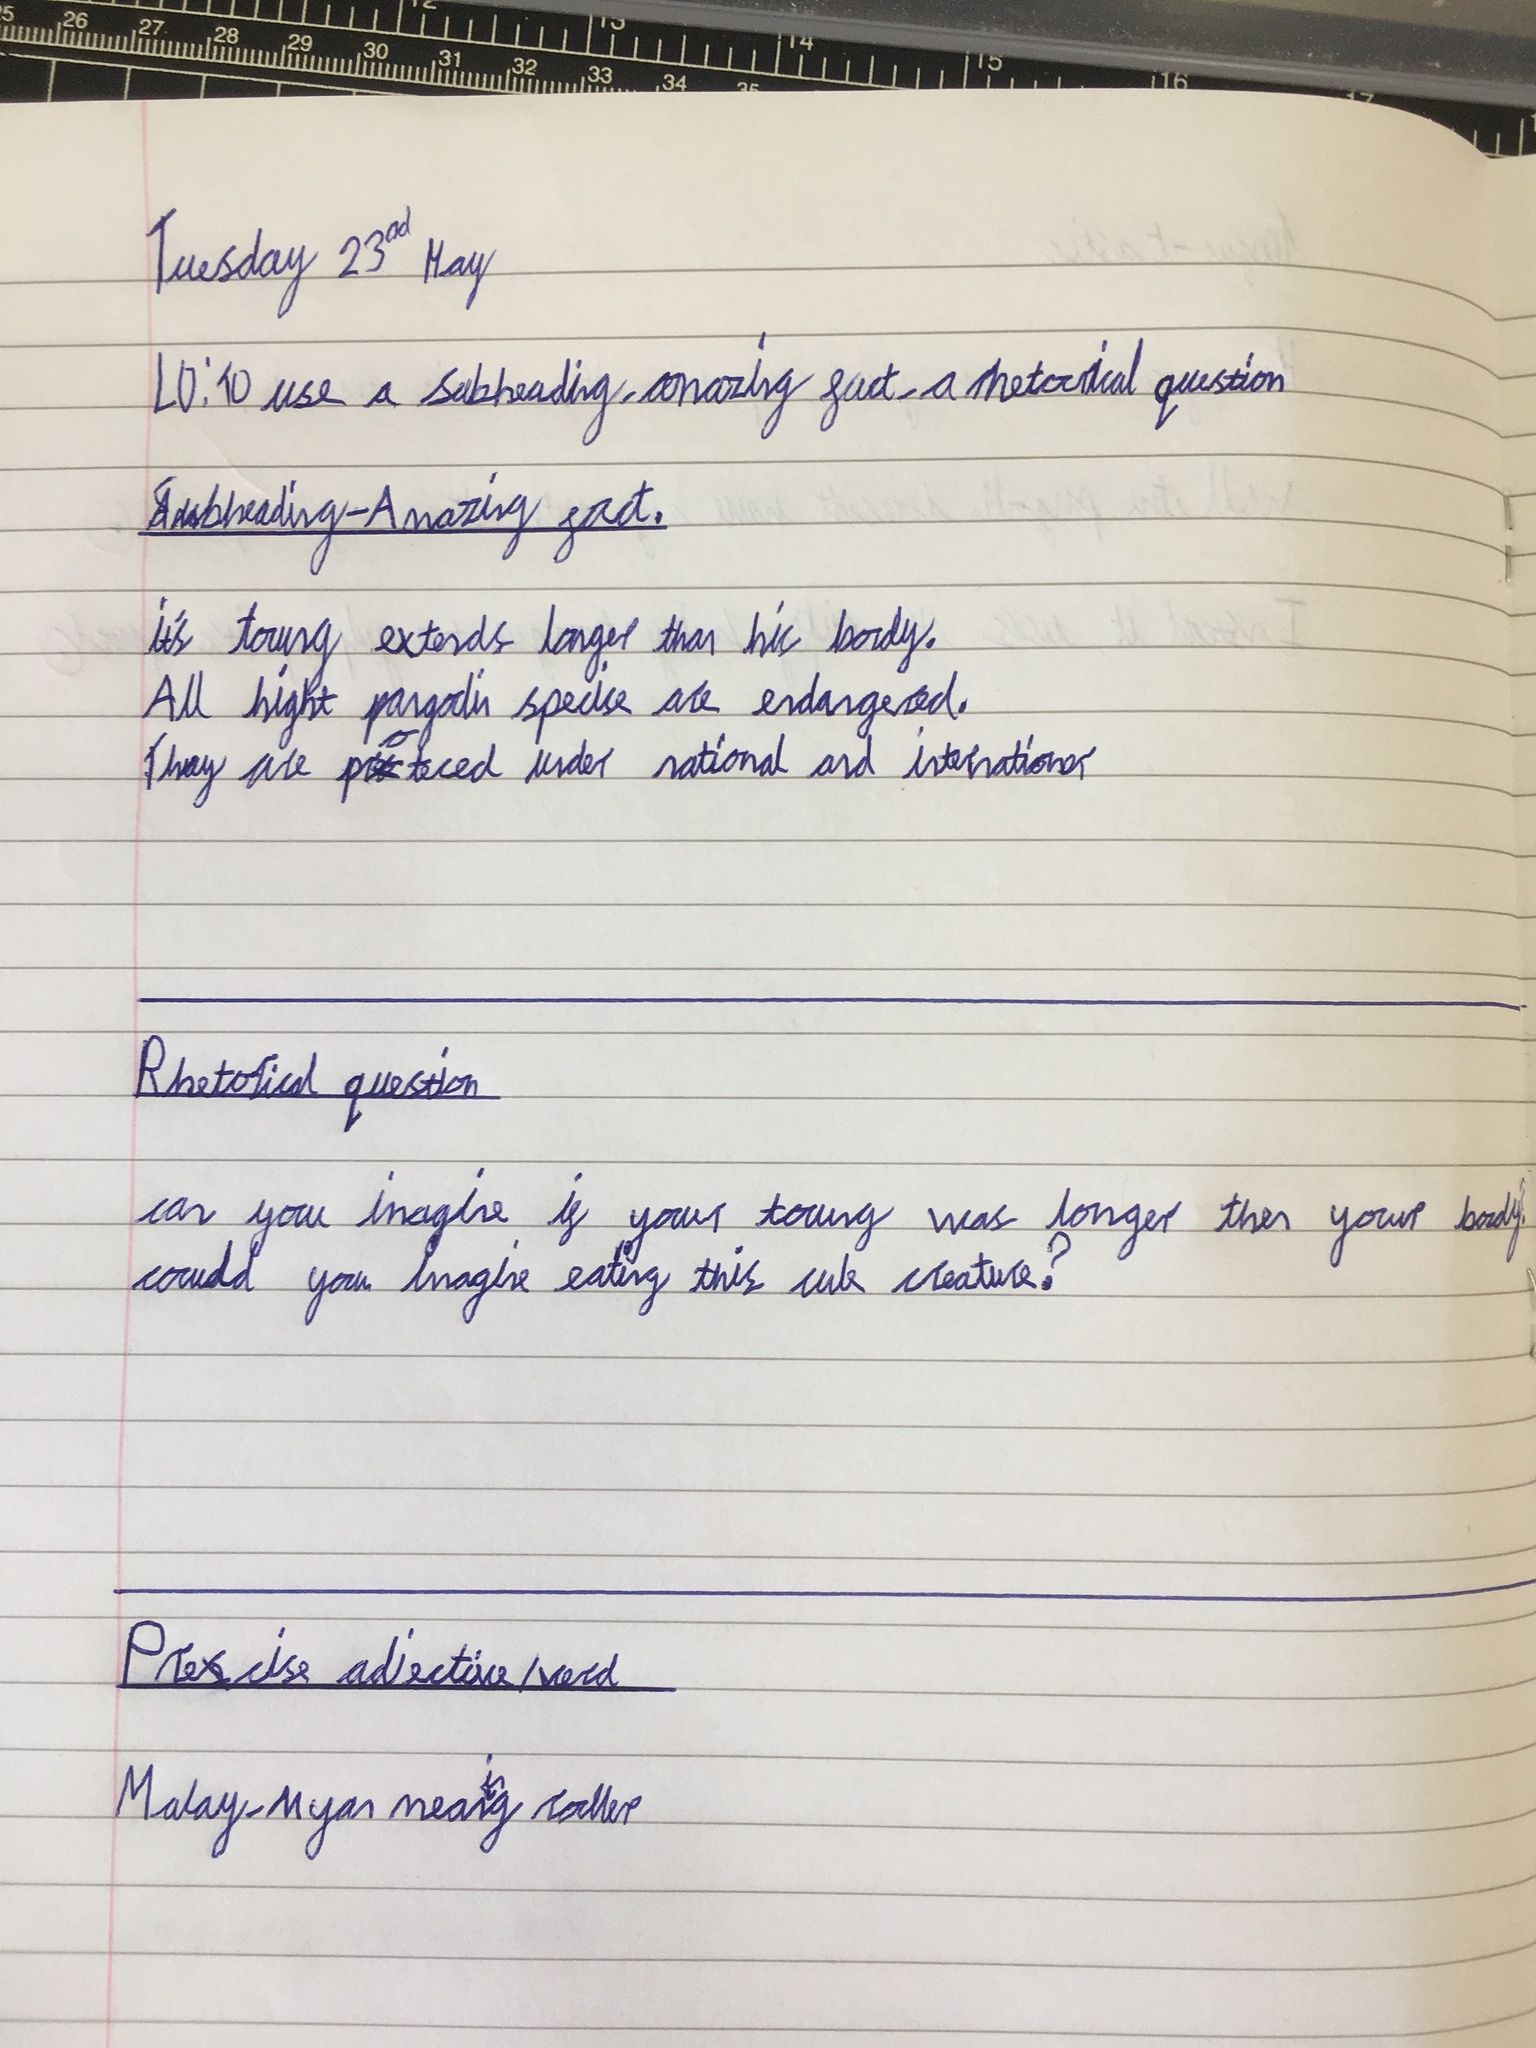 Tuesday 23rd May
LO: To use a subheading-amazing fact-a rhetorical question
Subheading-Amazing fact.
it's toung extends longer than his boody.
All hight pangolin specise are endangered.
They are proteced under national and internationor
Rhetorical question
can you imagine if your toung was longer then your boody?
coudd you imagine eating this cute creature?
Prescise adjective/verd
Malay-Myan meaning roller